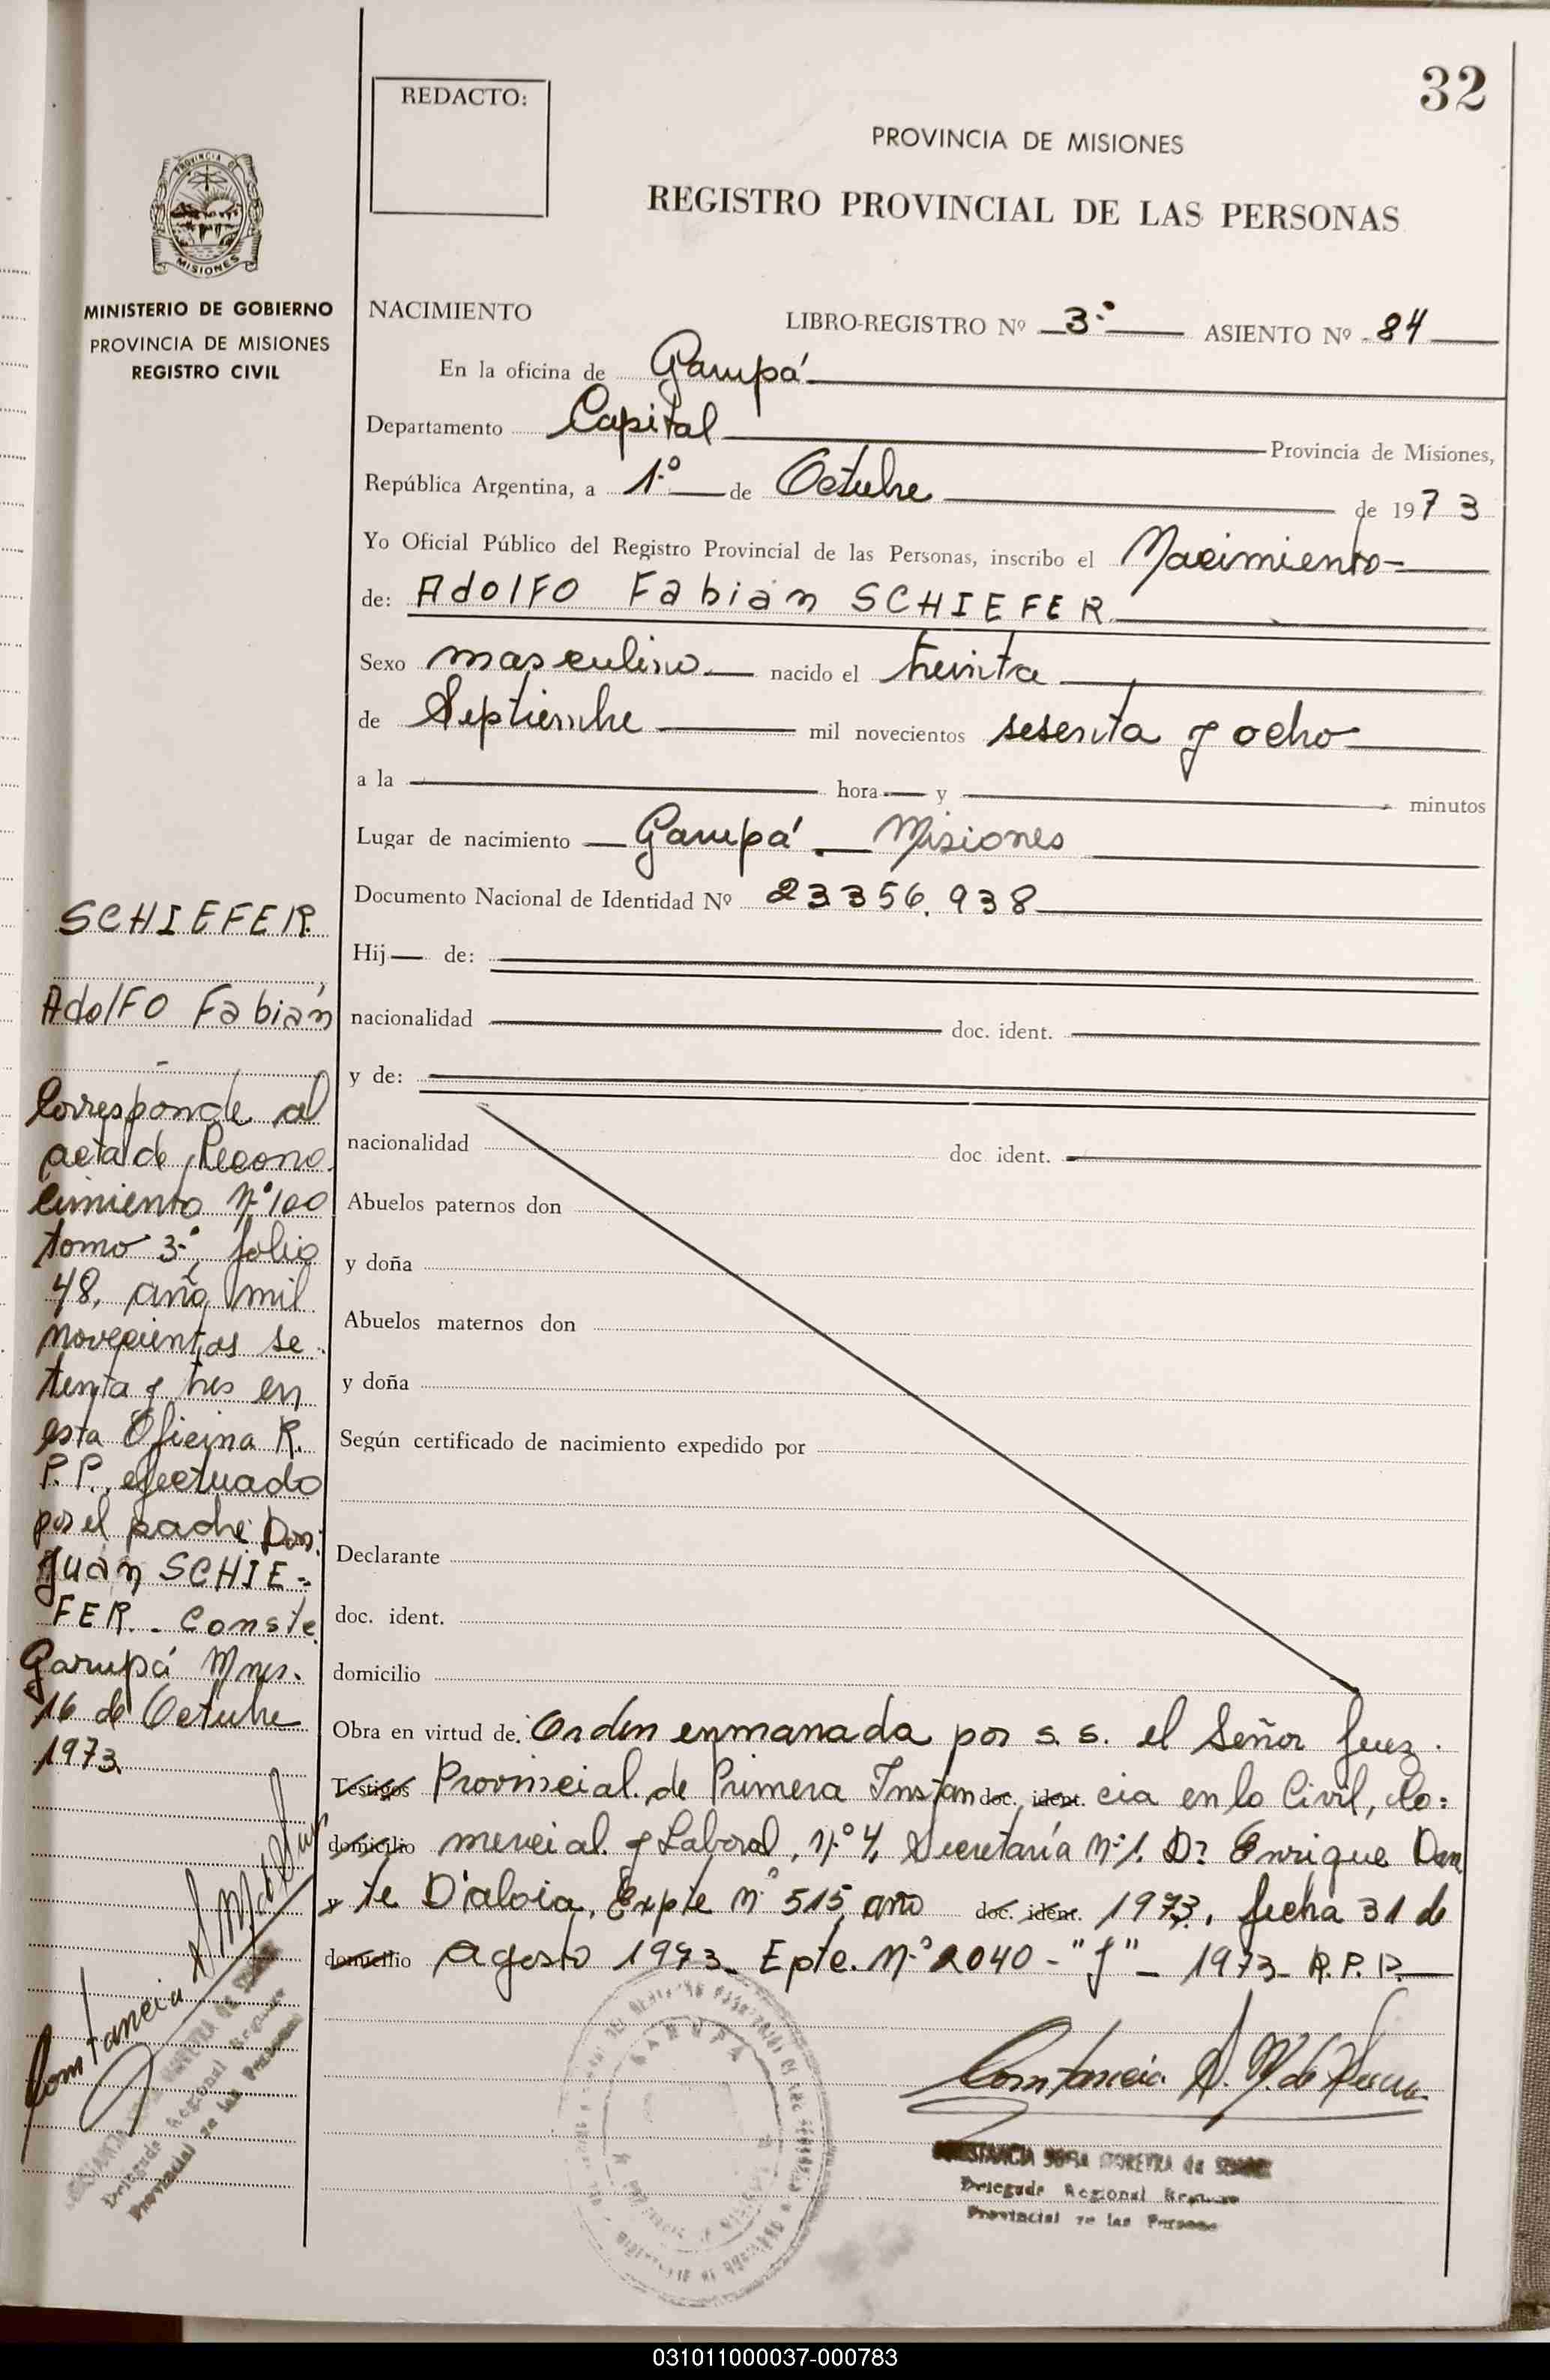 32
REDACTO:
PROVINCIA DE MISIONES
REGISTRO PROVINCIAL DE LAS PERSONAS
PROVINCIA DE
MISIONES
MINISTERIO DE GOBIERNO
PROVINCIA DE MISIONES
REGISTRO CIVIL
NACIMIENTO LIBRO-REGISTRO Nº 3º ASIENTO Nº 84
En la oficina de Garupá
Departamento Capital Provincia de Misiones,
República Argentina, a 1º de Octubre de 1973
Yo Oficial Público del Registro Provincial de las Personas, inscribo el Nacimiento
de: AdolFO Fabián SCHIEFER
Sexo masculino nacido el treinta
de Septiembre mil novecientos sesenta y ocho
a la hora y minutos
Lugar de nacimiento Garupá Misiones
Documento Nacional de Identidad Nº 23356.938
Hij de:
nacionalidad doc. ident.
y de:
nacionalidad doc ident.
Abuelos paternos don
y doña
Abuelos maternos don
y doña
Según certificado de nacimiento expedido por
Declarante
doc. ident.
domicilio
Obra en virtud de: Orden enmanada por s. s. el Señor Juez
Testigos Provincial de Primera Instan doc. ident. cia en lo Civil, Co:
domicilio mercial y Laboral, Nº 4, Secretaría Nº 1. Dr Enrique Dan
y te D'aloia, Expte nº 515 año doc. ident. 1973, fecha 31 de
domicilio Agosto 1973 Epte. Nº 2040 - "J" - 1973 R.P.P.
SCHIEFER
AdolFO Fabián
Corresponde al
acta de Recono
cimiento Nº 100
tomo 3º, folio
48, año mil
novecientos se
tenta y tres en
esta Oficina R.
P.P. efectuado
por el padre Don:
Juan SCHIE=
FER. Conste
Garupá Mnes.
16 de Octubre
1973.
Constancia
GARUPA
Constancia S. M. de
CONSTANCIA SOFIA MOREYRA de
Delegada Regional
Provincial de las
Delegada Regional
Provincial de las
031011000037-000783